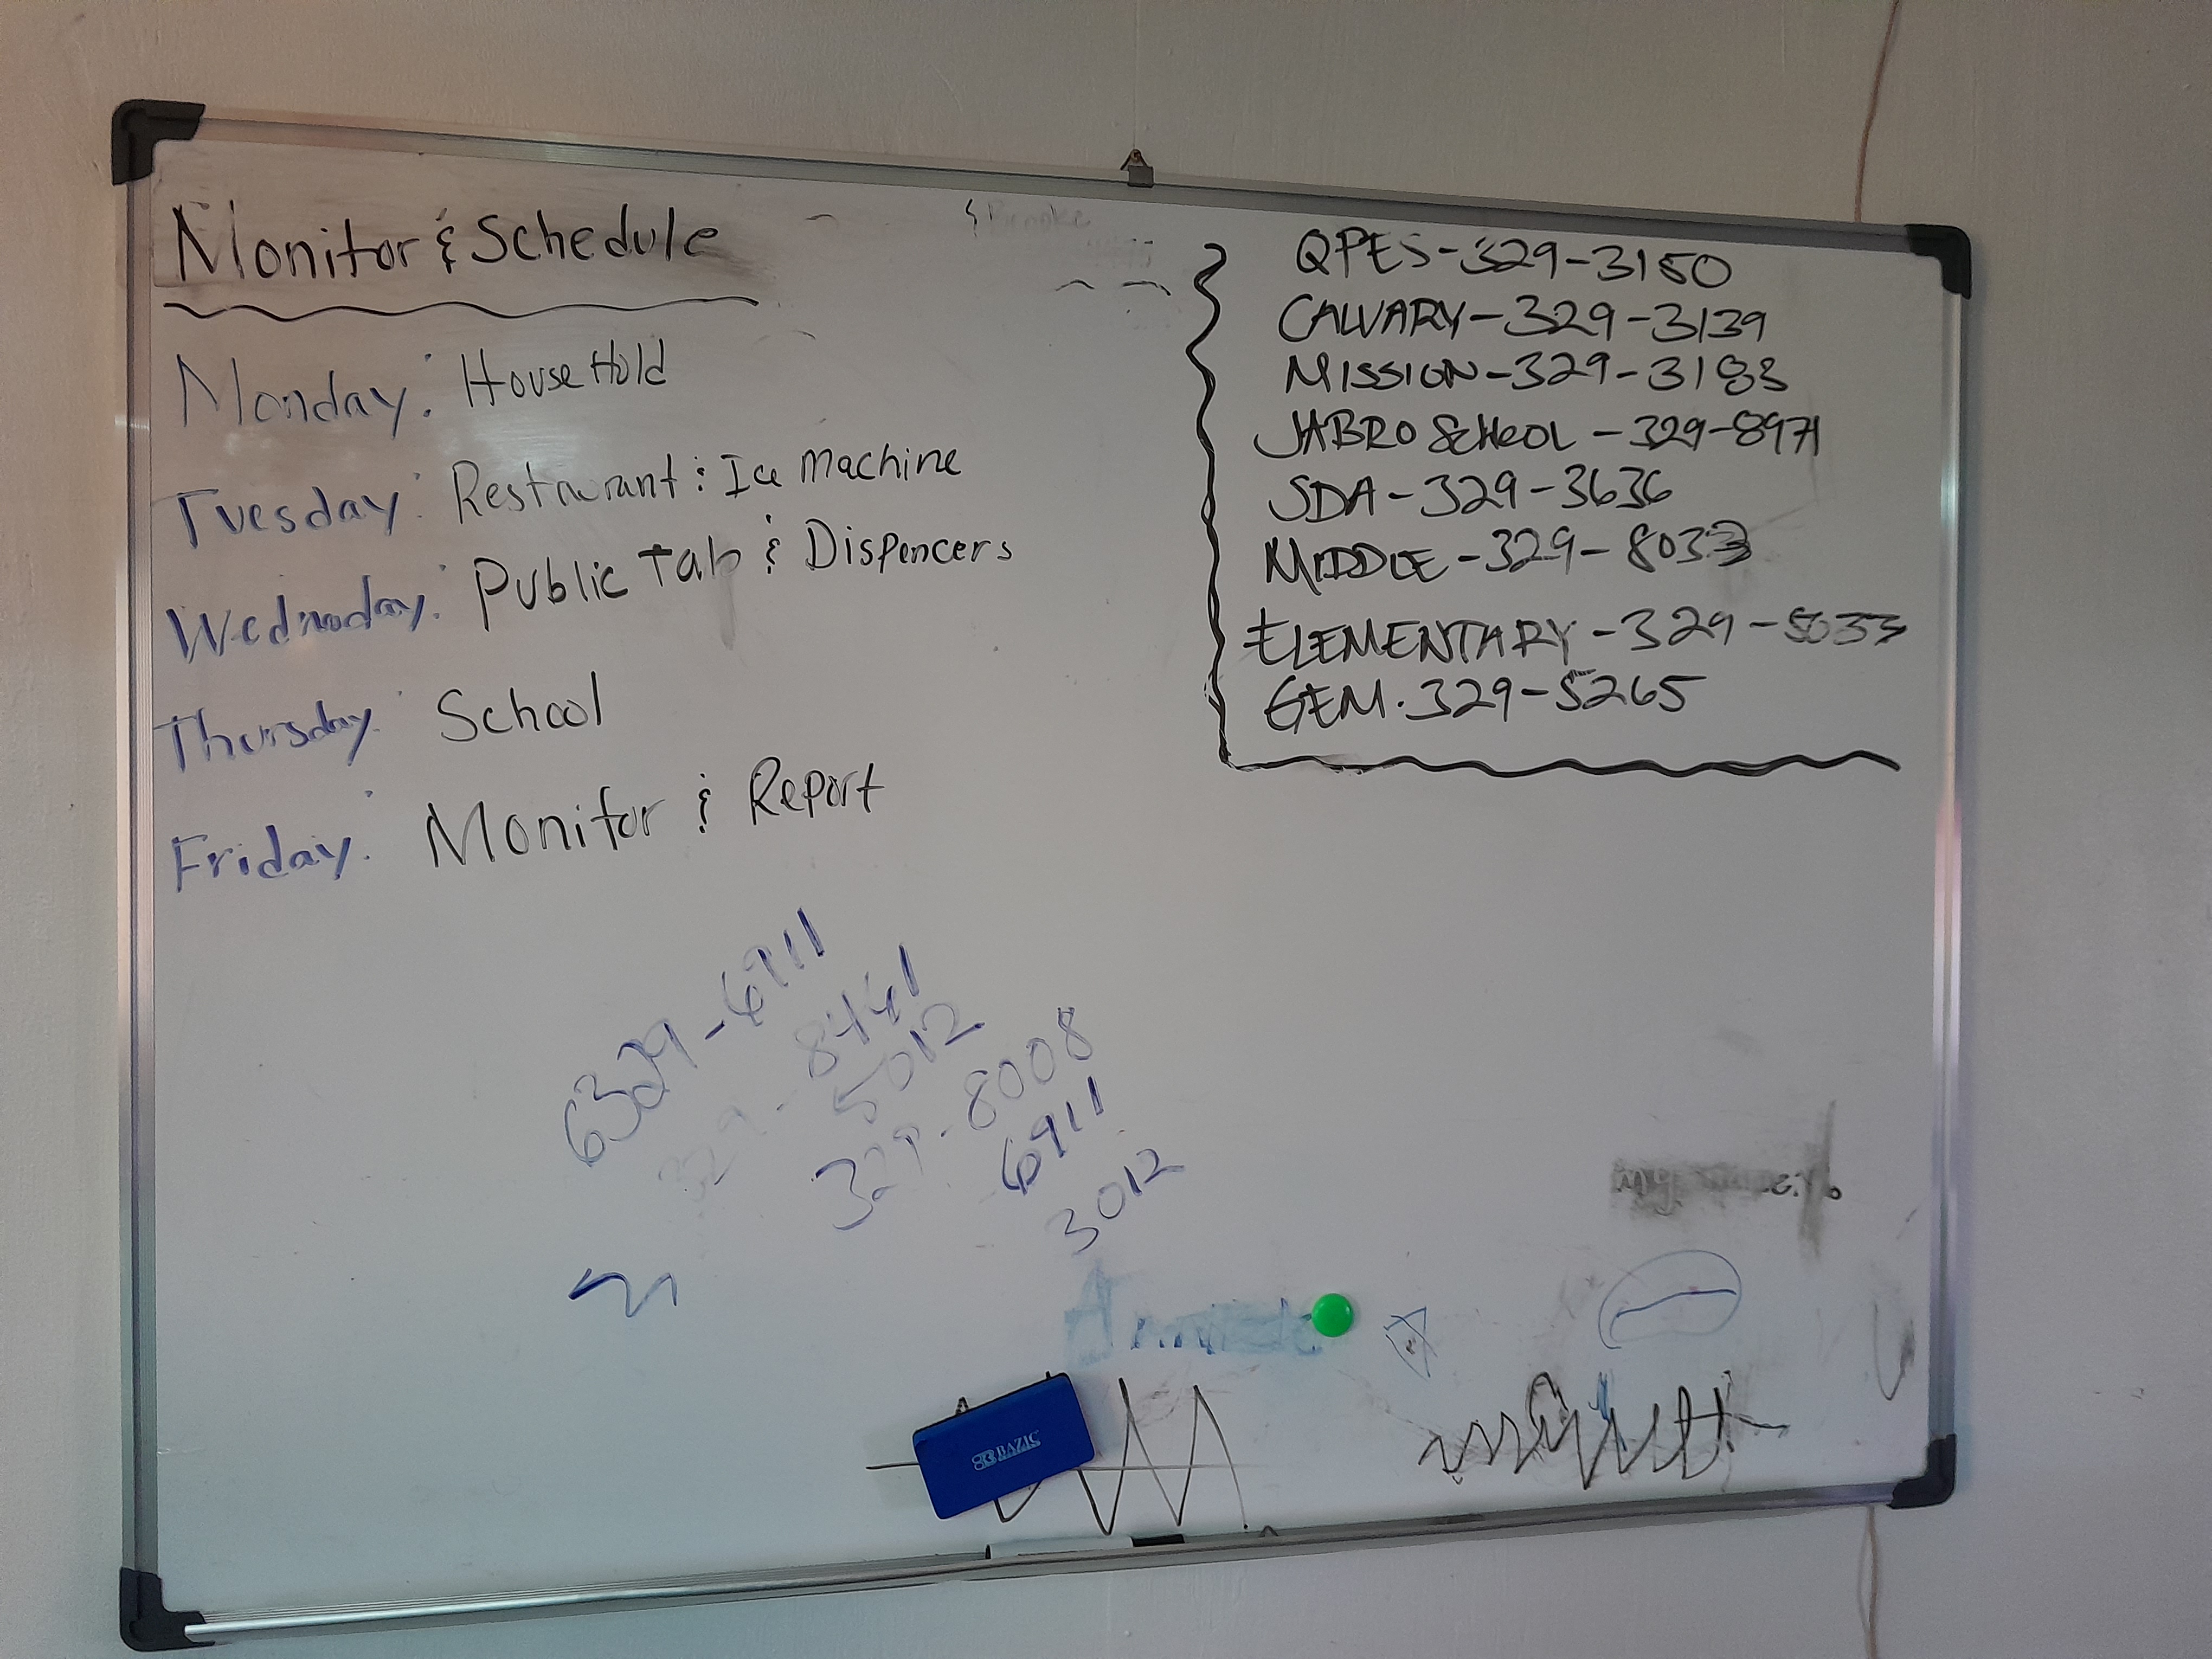 Monitor & Schedule
Monday: HouseHold
Tuesday: Restaurant & Ice Machine
Wednesday: Public Tab & Dispencers
Thursday: School
Friday: Monitor & Report
QPES-329-3150
CALVARY-329-3139
MISSION-329-3183
JABRO SCHOOL-329-8971
SDA-329-3636
MIDDLE-329-8033
ELEMENTARY-329-5033
GEM.329-5265
6329-6911
329-8461
5012
329-8008
6911
3012
BAZIC